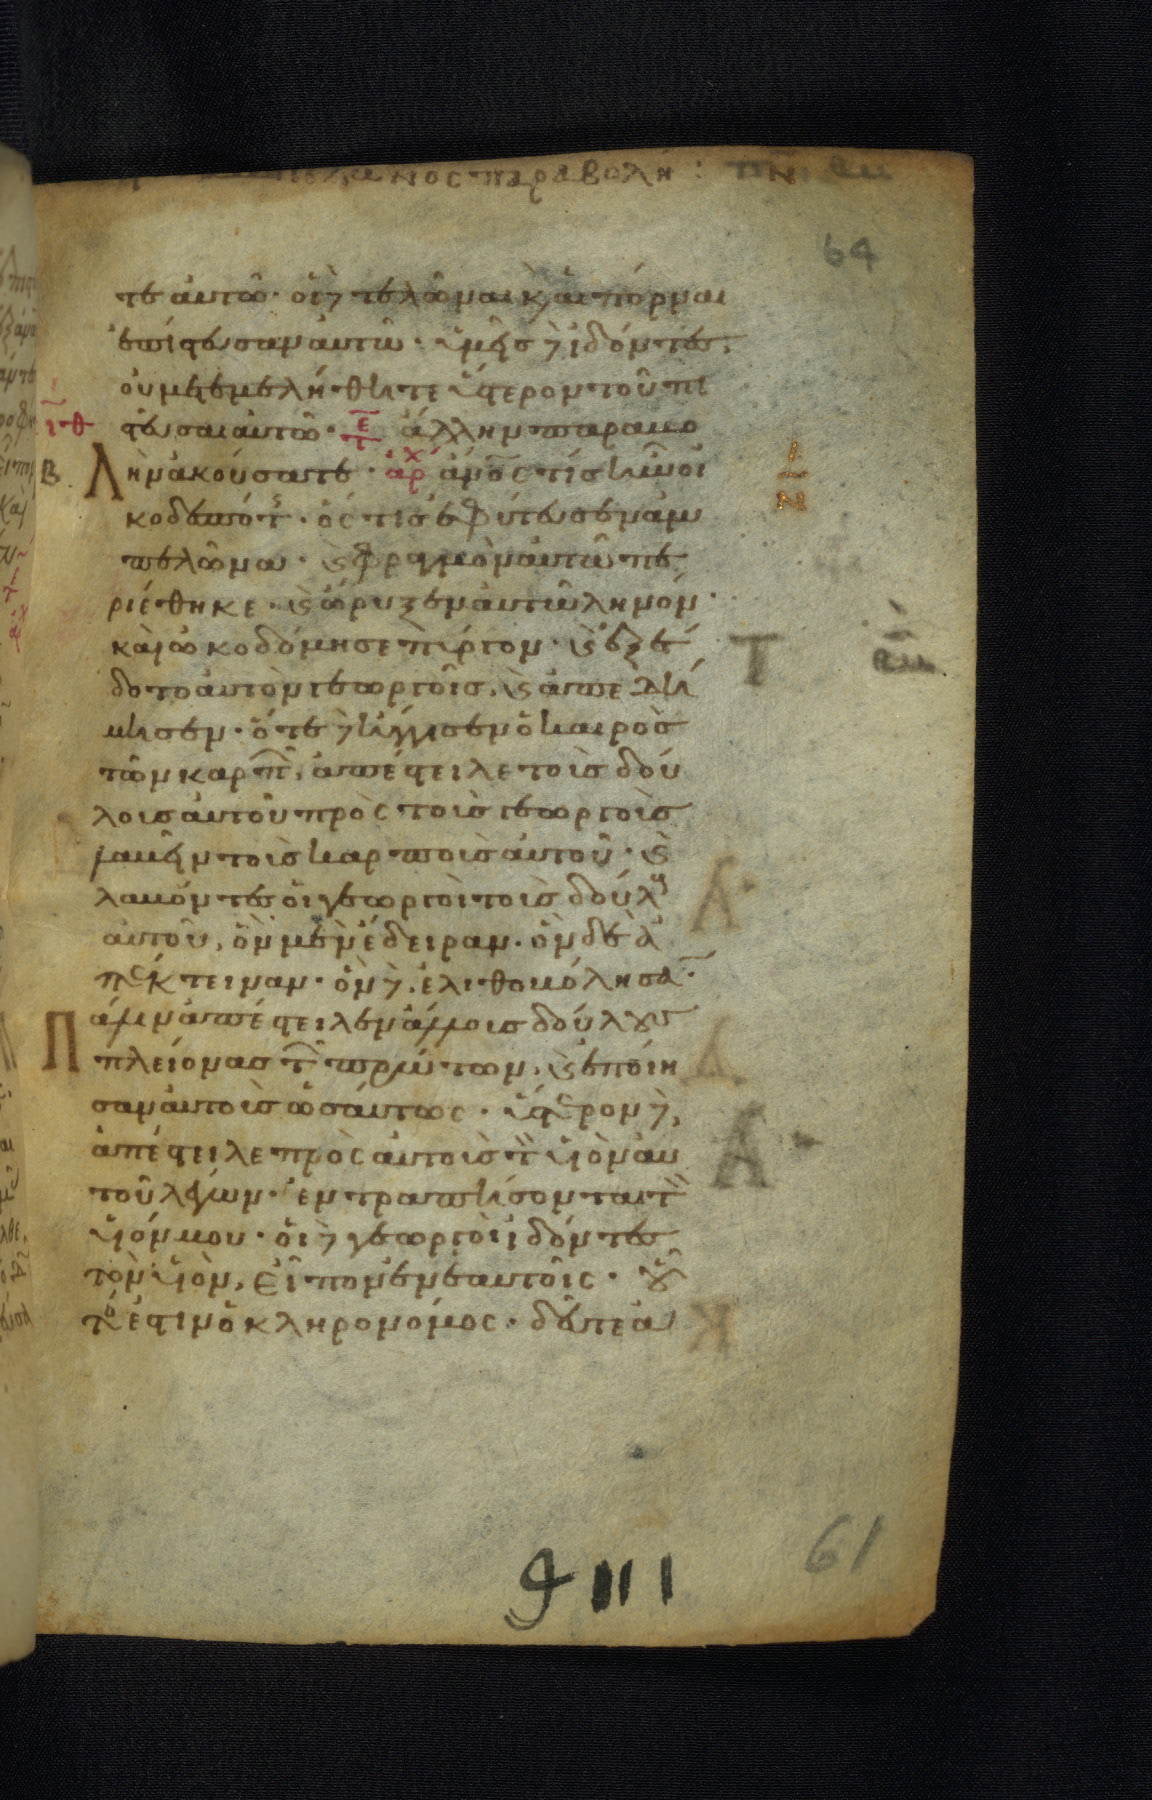 παραβολή :
64
τε αυτῶ· οἱ δὲ τελῶναι κ, αἱ πόρναι
ἐπίστευσαν αυτῶ· ὑμεῖς δὲ ἰδόντες,
ου μετεμελήθητε ὕστερον τοῦ πι
ιθ στεῦσαι αυτῶ· τε ἄλλην παραβο
Β Λὴν ἀκούσατε· αρχ ἀνος τίς ἦν οἰ
κοδεσπότ· ός τις ἐφύτευσεν ἀμ
πελῶνα· κ φραγμὸν αυτῶ πε
ριέθηκε· κ ὤρυξεν ἀυτῶ ληνόν·
καὶ ὠκοδόμησε πύργον· κ ἐξέ
δοτο αυτὸν γεωργοῖς, κ ἀπεδή
μησεν· ὅτε δὲ ἤγγισεν ὁ καιρὸς
τῶν καρπ, ἀπέστειλε τοὺς δού
λους αυτοῦ πρὸς τοὺς γεωργοὺς
λαβεῖν τοὺς καρποὺς αυτοῦ· κ
λαβόντες οἱ γεωργοὶ τοὺς δούλους
αυτοῦ, ὃν μὲν ἔδειραν· ὃν δὲ ἀ
πέκτειναν· ὃν δὲ, ἐλιθοβόλησα·
Πάλιν ἀπέστειλεν ἄλλους δούλους
πλείονας τ πρώτων, κ ἐποίη
σαν αυτοῖς ὡσαύτως· ὕστερον δὲ,
ἀπέστειλε πρὸς αυτοὺς τ υἱὸν αυ
τοῦ λέγων· ἐντραπήσονται τ
υἱόν μου· οἱ δὲ γεωργοὶ ἰδόντες
τὸν υἱὸν, εἶπον ἐν ἑαυτοῖς· οὗ
τος ἐστιν ὁ κληρονόμος· δεῦτε ἀ
61